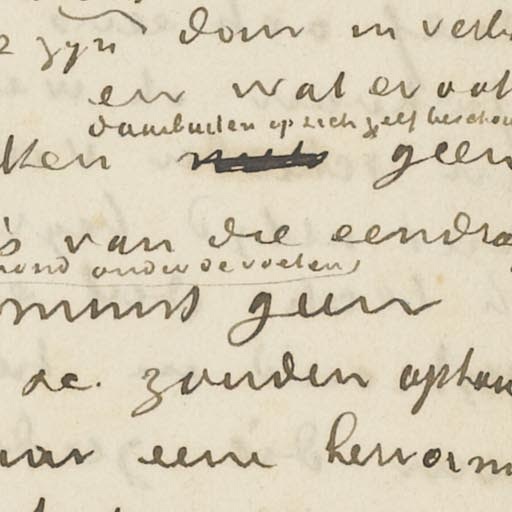 zyn door in verb
en wat er ook
daarbuiten op zich zelf beschou
lken geen
's van die eendra
rond onder de voeten,
minst geen
de. zouden ophou
aar eene hervorm